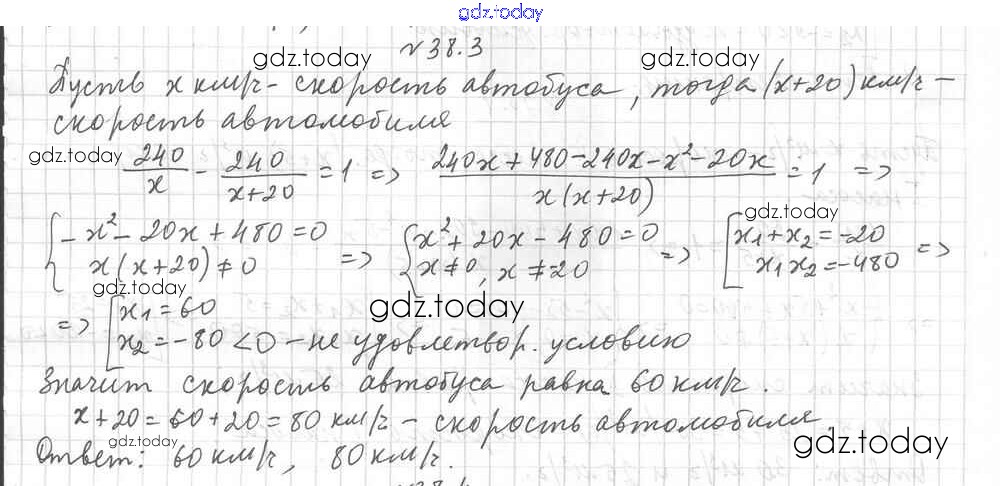 gdz.today
№ 38.3
gdz.today gdz.today
Пусть x км/ч - скорость автобуса, тогда (x+20) км/ч -
скорость автомобиля
gdz.today
240/x - 240/(x+20) = 1 => (240x+480-240x-x²-20x)/(x(x+20)) = 1 =>
gdz.today
{-x²-20x+480=0 => {x²+20x-480=0 => [x₁+x₂=-20 =>
x(x+20)≠0 x≠0, x≠-20 x₁x₂=-480
gdz.today
gdz.today
=> [x₁=60
x₂=-80<0 - не удовлетвор. условию
Значит скорость автобуса равна 60 км/ч.
x+20=60+20=80 км/ч - скорость автомобиля
gdz.today gdz.today
Ответ: 60 км/ч, 80 км/ч.